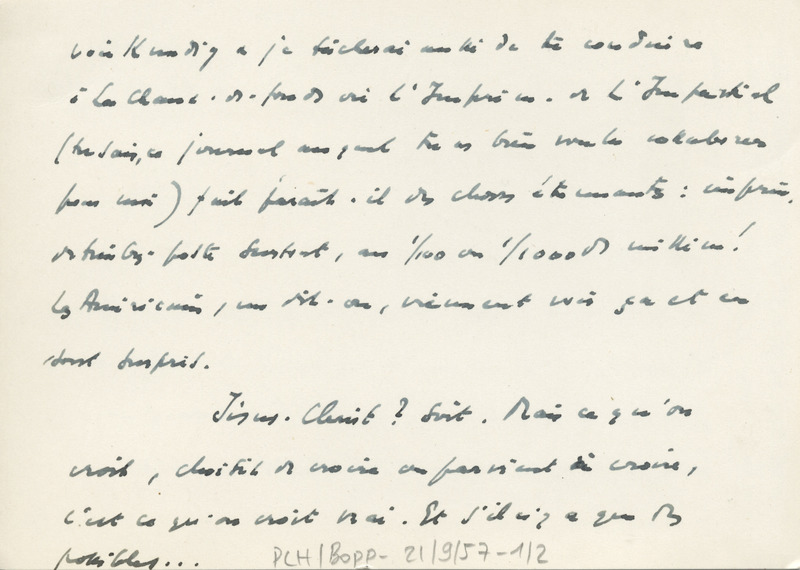 voir Kundig & je tâcherai aussi de te conduire
à La Chaux-de-fonds où l'Imprim. de L'Impartial
(tu sais, ce journal auquel tu as bien voulu collaborer
pour moi) fait paraît-il des choses étonnantes : imprim.
de timbre-poste surtout, au 1/100 ou 1/1000 de millim!
Les Américains, me dit-on, viennent voir ça et en
sont surpris.
Jésus-Christ ? Soit. Mais ce qu'on
croit, choisit de croire ou parvient à croire,
c'est ce qu'on croit vrai. Et s'il n'y a que des
possibles...
PCH/BOPP- 21/9/57-1/2